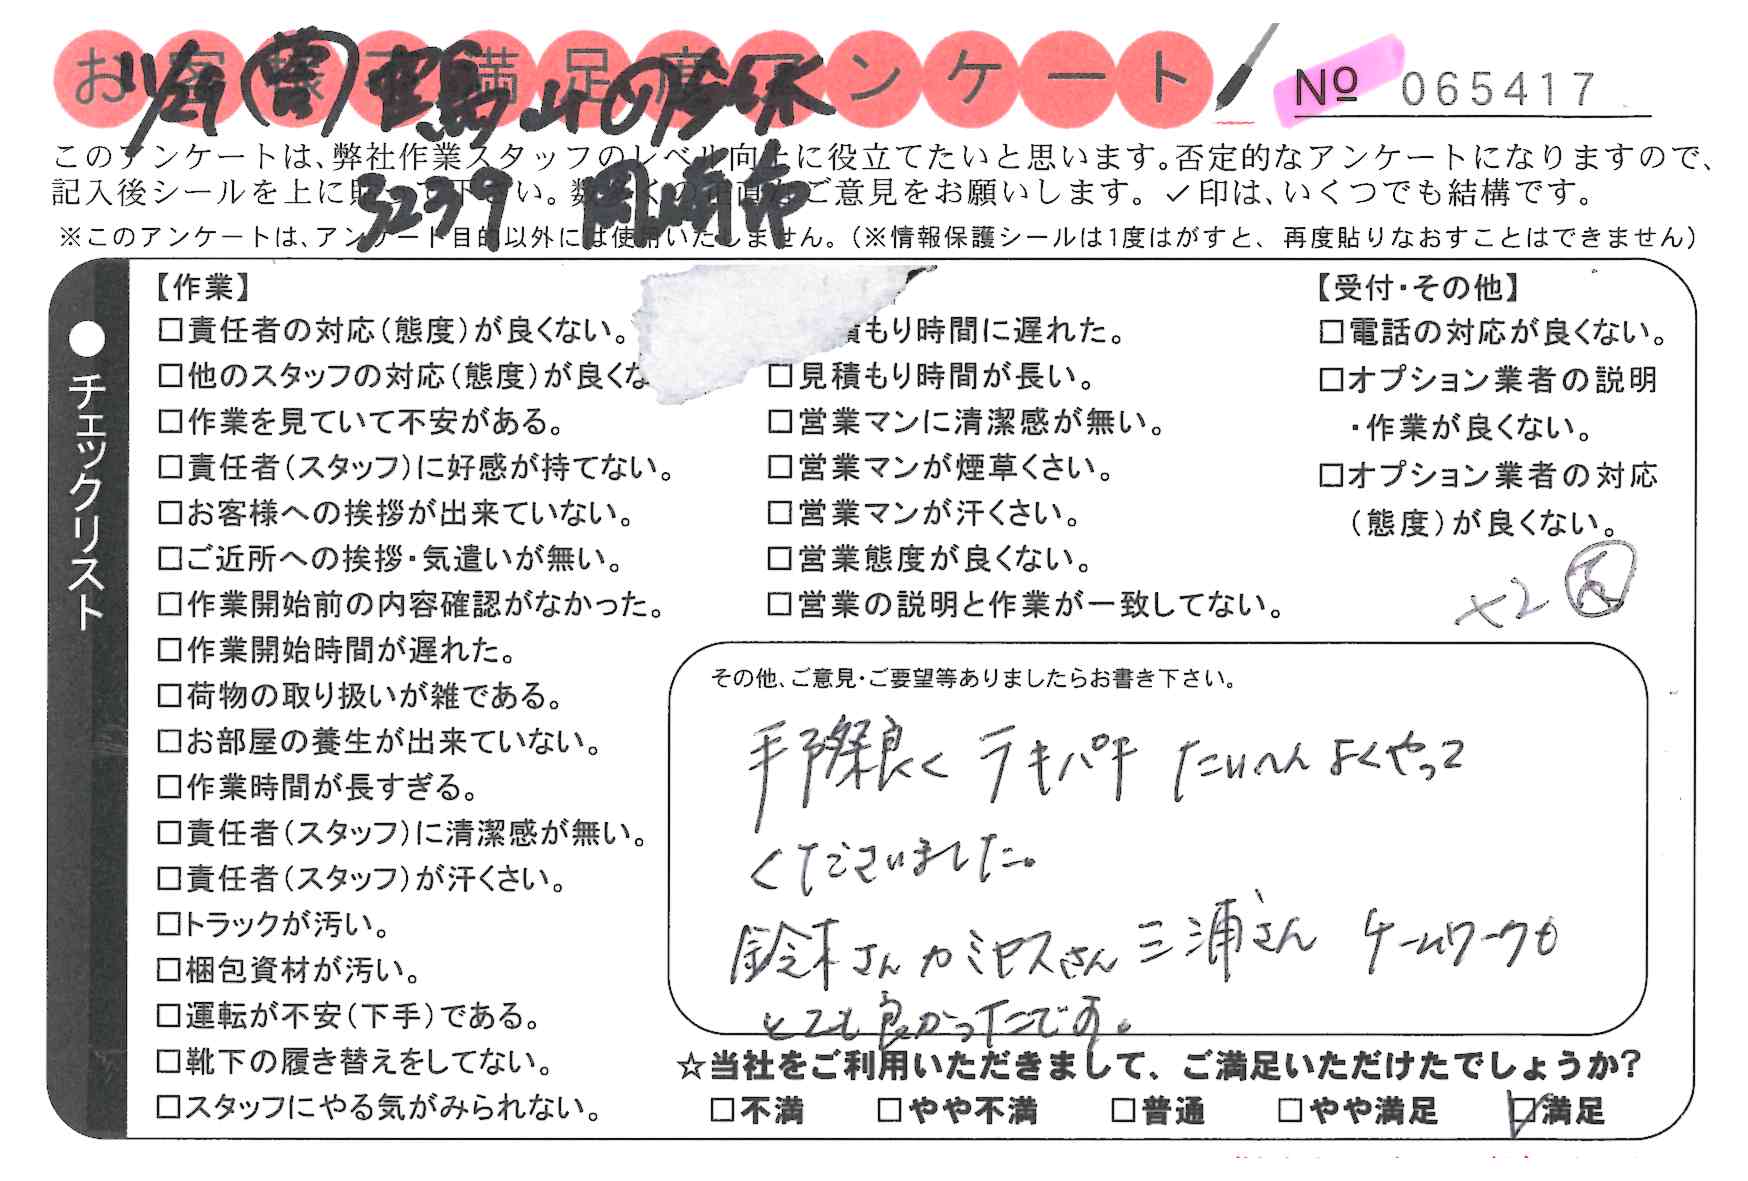 お客様満足度アンケート
№ 065417
このアンケートは、弊社作業スタッフのレベル向上に役立てたいと思います。否定的なアンケートになりますので、
記入後シールを上に貼って下さい。数多くの正直なご意見をお願いします。✓印は、いくつでも結構です。
3239 岡崎市
※このアンケートは、アンケート目的以外には使用いたしません。(※情報保護シールは1度はがすと、再度貼りなおすことはできません)
●チェックリスト
【作業】
□責任者の対応(態度)が良くない。
□他のスタッフの対応(態度)が良くな
□作業を見ていて不安がある。
□責任者(スタッフ)に好感が持てない。
□お客様への挨拶が出来ていない。
□ご近所への挨拶・気遣いが無い。
□作業開始前の内容確認がなかった。
□作業開始時間が遅れた。
□荷物の取り扱いが雑である。
□お部屋の養生が出来ていない。
□作業時間が長すぎる。
□責任者(スタッフ)に清潔感が無い。
□責任者(スタッフ)が汗くさい。
□トラックが汚い。
□梱包資材が汚い。
□運転が不安(下手)である。
□靴下の履き替えをしてない。
□スタッフにやる気がみられない。
積もり時間に遅れた。
□見積もり時間が長い。
□営業マンに清潔感が無い。
□営業マンが煙草くさい。
□営業マンが汗くさい。
□営業態度が良くない。
□営業の説明と作業が一致してない。
【受付・その他】
□電話の対応が良くない。
□オプション業者の説明
・作業が良くない。
□オプション業者の対応
(態度)が良くない。
×2
その他、ご意見・ご要望等ありましたらお書き下さい。
手際良く テキパキ たいへん よくやって
くださいました。
鈴木さん カミヤスさん 三浦さん チームワークも
とても良かったです。
☆当社をご利用いただきまして、ご満足いただけたでしょうか?
□不満 □やや不満 □普通 □やや満足 ☑満足